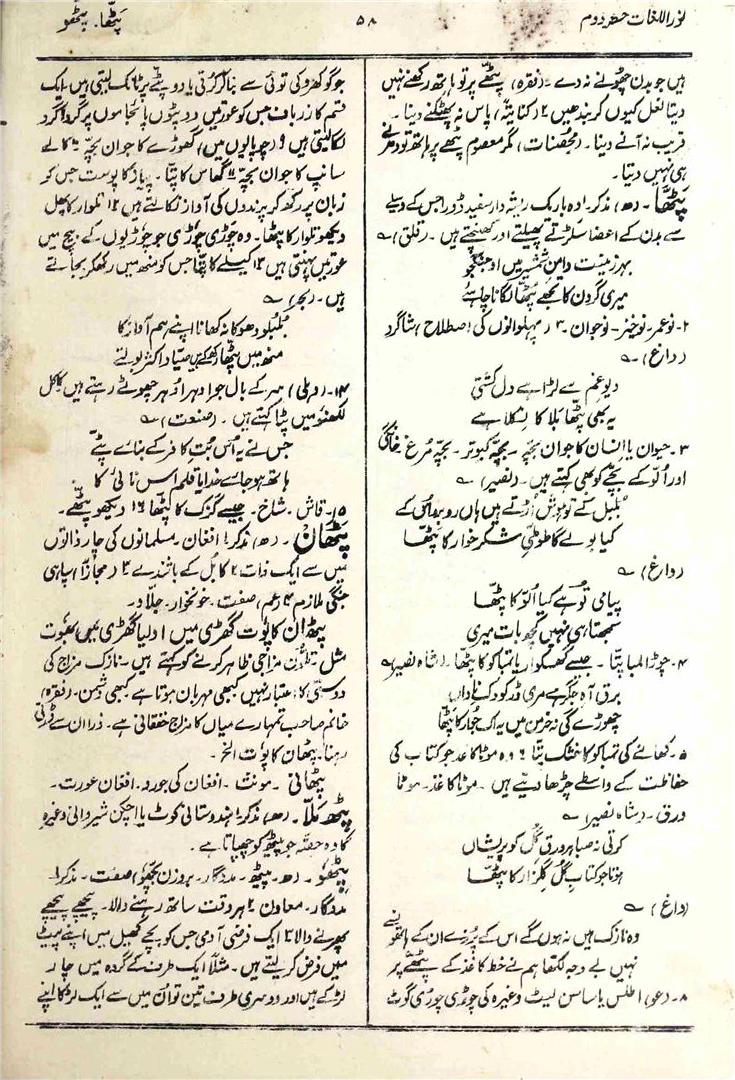 نور اللغات حصہ دوم
۵۸
پَٹّھا۔ پٹھو
ہیں جو بدن چھونے نہ دے۔ (فقرہ) پٹھے پر تو ہاتھ رکھنے نہیں
دیتا نعل کیوں کر بندھیں ۲ (کنایتہً) پاس نہ پھٹکنے دینا۔
قریب نہ آنے دینا۔ (محصنات) مگر معصوم پٹھے پر ہاتھ تو دھرنے
ہی نہیں دیتا۔
پَٹّھا۔ (ھ) مذکر۔ ا وہ باریک ریشہ دار سفید ڈور جس کے وسیلے
سے بدن کے اعضا سکڑتے پھیلتے اور کھنچتے ہیں۔ (قلق) ؎
بہر زینت دامنِ شمشیر میں او جنگجو
میری گردن کا تجھے پٹھا لگانا چاہئے
۲۔ نو عمر۔ نوخیز۔ نوجوان۔ ۳ (پہلوانوں کی اصطلاح) شاگرد
(داغ) ؎
دیو غم سے لڑا ہے دل کشتی
یہ بھی پٹھا بلا کا نکلا ہے
۳۔ حیوان یا انسان کا جوان بچّہ۔ بچّہ کبوتر۔ بچّہ مرغ خانگی
اور اُلّو کے بچے کو بھی کہتے ہیں۔ (نصیر) ؎
بلبل کے تو ہوش اڑتے ہیں ہاں روبرو اس کے
کیا بولے گا طوطیِ شکر خوار کا پٹھا
(داغ) ؎
پیامی تو ہے کیا اُلّو کا پٹّھا
سمجھتا ہی نہیں کچھ بات میری
۴۔ چوڑا لمبا پتا۔ جیسے گھیکوار یا تمباکو کا پٹھا۔ (شاہ نصیر) ؎
برق آہِ جگر ہے مری ڈر کودک ناداں
چھوڑے گی نہ خرمن میں یہ اک جوار کا پٹھا
۵۔ کھانے کی تمباکو کا خشک پتّا ۶ وہ موٹا کاغذ جو کتاب کی
حفاظت کے واسطے چڑھا دیتے ہیں۔ موٹا کاغذ۔ موٹا
ورق۔ (شاہ نصیر) ؎
کرتی نہ صبا ہر ورق گل کو پریشاں
ہوتا جو کتاب گل گلزار کا پٹھا
(داغ) ؎
وہ نازک ہیں نہ ہوں گے اس کے پرزے ان کے ہاتھوں سے
نہیں بے وجہ لکھا ہم نے خط کاغذ کے پٹھے پر
۸۔ (عو) اطلس یا ساسن لیٹ وغیرہ کی چوڑی چوڑی گوٹ
جو گوکھرو کی توئی سے بنا کر کرتی یا دوپٹے پر ٹانک لیتی ہیں۔ ایک
قسم کا زرباف جس کو عورتیں دوپٹوں پائجاموں پر گرداگرد
لگا لیتی ہیں ۹ (چوپالوں میں) گھوڑے کا جوان بچّہ ۱۰ کالے
سانپ کا جوان بچّہ ۱۱ گھاس کا پتا۔ پیاز کا پوست جس کو
زبان پر رکھ کر پرندوں کی آواز نکالتے ہیں ۱۲ تلوار کا پھل
دیکھو تلوار کا پٹھا۔ وہ چوڑی چوڑی جو چوڑیوں کے بیچ میں
عورتیں پہنتی ہیں ۱۳ کیلے کا پتّا جس کو منھ میں رکھ کر بجاتے
ہیں۔ (بحر) ؎
بلبلو دھوکا نہ کھانا اپنے ہم آواز کا
منھ میں پٹھا رکھ کے یہ صیاد اکثر بولتے
۱۴۔ (دہلی) سر کے بال جو ادھر اُدھر چھوٹے رہتے ہیں کاکل
لکھنؤ میں پٹا کہتے ہیں۔ (صنعت) ؎
جس نے یہ اُس بُت کافر کے بنائے پٹے
ہاتھ ہو جائے خدایا قلم اس نائی کا
۱۵۔ قاش۔ شاخ۔ جیسے گزک کا پٹھا ۱۶ دیکھو پٹھے۔
پٹھان۔ (ھ) مذکر ۱ افغان۔ مسلمانوں کی چار ذاتوں
میں سے ایک ذات ۲ کابل کے باشندے ۳ (مجازاً) سپاہی
جنگی ملازم ۴ (عم) صفت۔ خونخوار۔ جلاد۔
پٹھان کا پوت گھڑی میں اولیا گھڑی میں بھوت
مثل۔ تلون مزاجی ظاہر کرنے کو کہتے ہیں۔ نازک مزاج کی
دوستی کا اعتبار نہیں کبھی مہربان ہوتا ہے کبھی دشمن۔ (فقرہ)
خانم صاحب تمہارے میاں کا مزاج خفقانی ہے۔ ذرا ان سے ڈرتی
رہنا۔ پٹھان کا پوت الخ۔
پٹھانی۔ مونث۔ افغان کی جورو۔ افغان عورت۔
پٹھ کلا۔ (ھ) مذکر۔ ہندوستانی کوٹ یا اچکن شیروانی وغیرہ
کا وہ حصّہ جو پیٹھ کو چھپاتا ہے۔
پٹھو۔ (ھ۔ پیٹھ۔ مددگار۔ بروزن بچھو) صفت۔ مذکر ۱۔
مددگار۔ معاون ۲ ہر وقت ساتھ رہنے والا۔ پیچھے پیچھے
پھرنے والا ۳ ایک فرضی آدمی جس کو بچے کھیل میں اپنے
میں فرض کر لیتے ہیں۔ مثلاً ایک طرف کے گروہ میں چار
لڑکے ہیں اور دوسری طرف تین تو ان میں سے ایک لڑکا اپنے